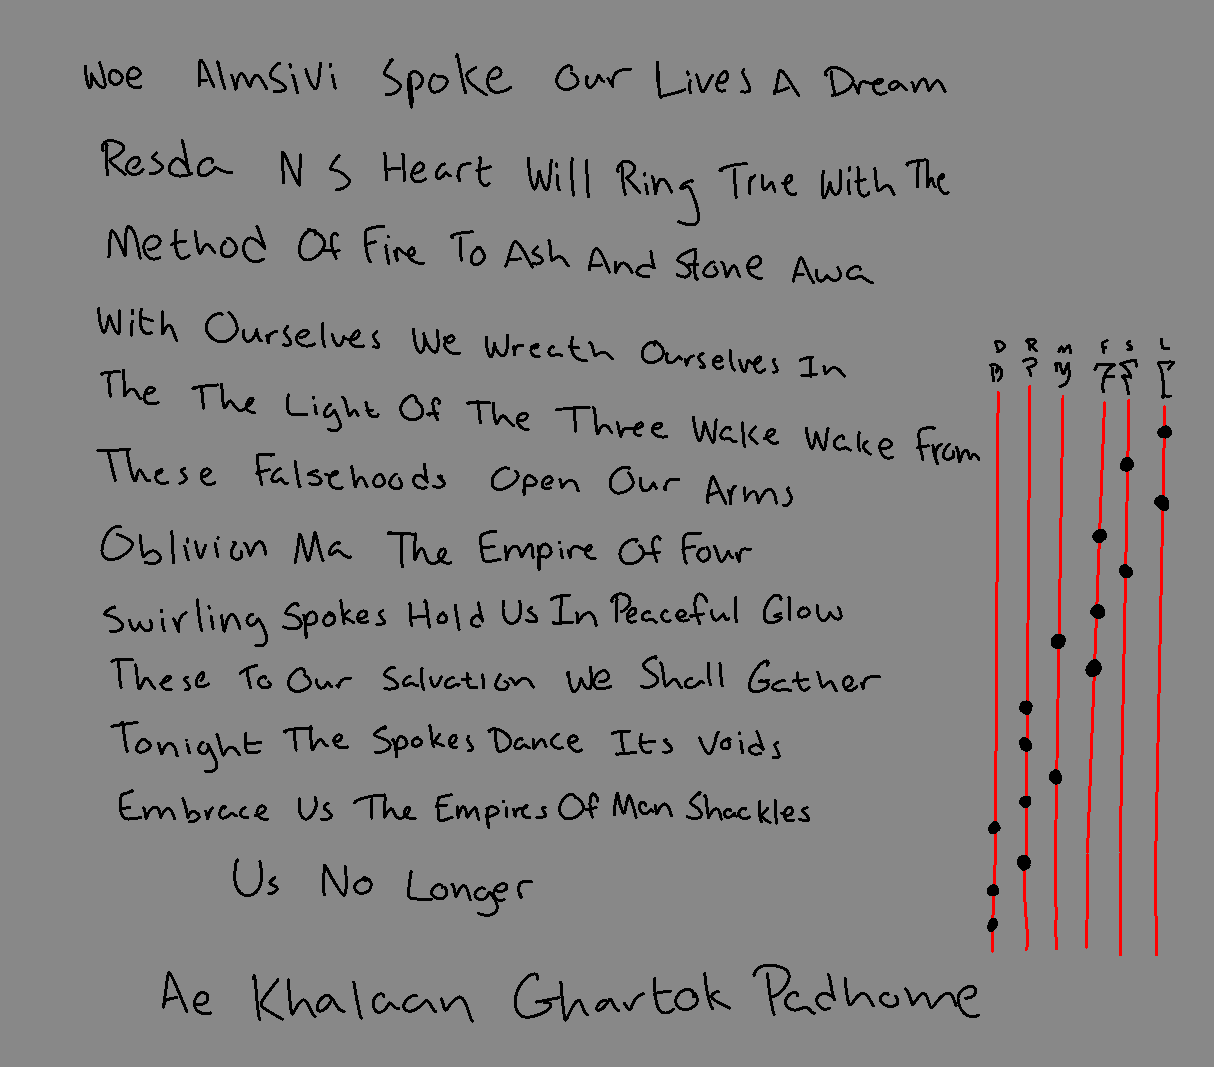 Woe AlmSiVi Spoke Our Lives A Dream
Resda N S Heart Will Ring True With The
Method Of Fire To Ash And Stone Awa
With Ourselves We Wreath Ourselves In
The The Light Of The Three Wake Wake From
These Falsehoods Open Our Arms
Oblivion Ma The Empire Of Four
Swirling Spokes Hold Us In Peaceful Glow
These To Our Salvation We Shall Gather
Tonight The Spokes Dance Its Voids
Embrace Us The Empires Of Man Shackles
Us No Longer
Ae Khalaan Ghartok Padhome
D R M F S L